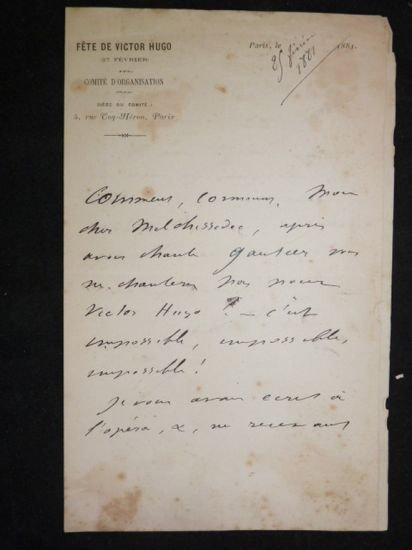 FÊTE DE VICTOR HUGO
27 FÉVRIER
COMITÉ D'ORGANISATION
SIÈGE DU COMITÉ :
5, rue Coq-Héron, Paris
Paris, le 1881.
25 février
1881
Comment, comment, Mon
cher Melchissedec, après
avoir chanté Gautier vous
ne chanterez pas pour
Victor Hugo ? — c'est
impossible, impossible,
impossible !
Je vous avais écrit à
l'opéra, &, ne recevant